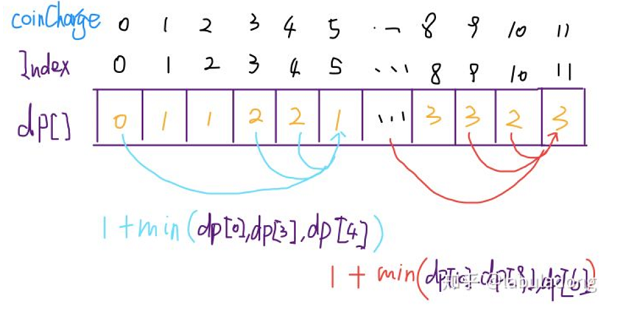 coinCharge 0 1 2 3 4 5 ... 8 9 10 11
Index 0 1 2 3 4 5 ... 8 9 10 11
dp[] 0 1 1 2 2 1 ... 3 3 2 3
1+min(dp[0],dp[3],dp[4])
1+min(
知乎 @labuladong